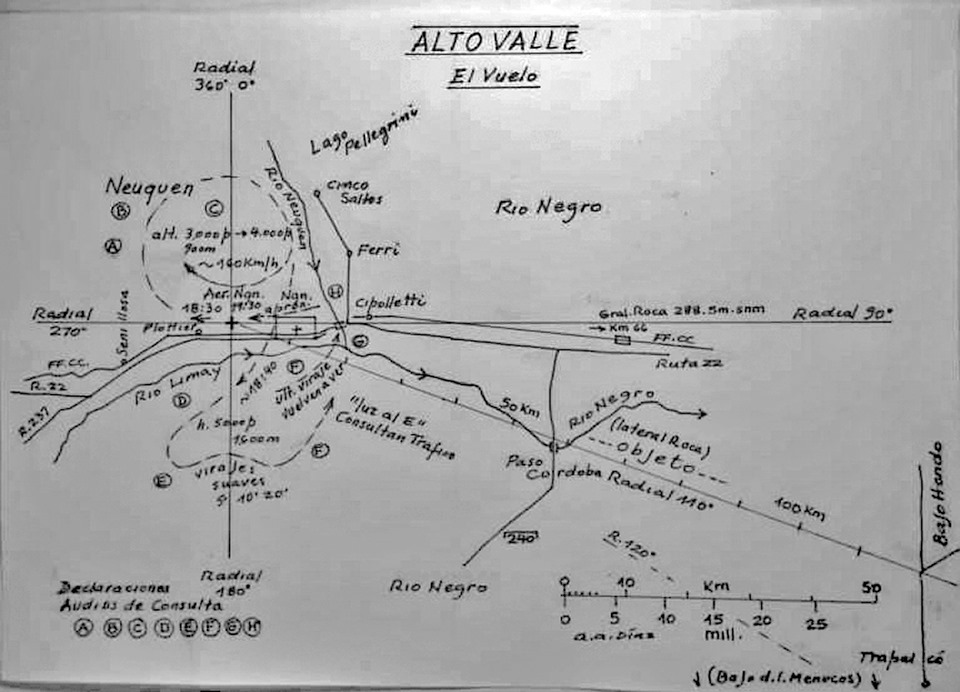 ALTO VALLE
El Vuelo
Radial
360° 0°
Lago
Pellegrini
Rio Neuquen
Cinco
Saltos
Neuquen
Rio Negro
B
C
alt. 3.000p → 4.000p
900m
A
~ 160 Km/h
Ferri
H
Aer. Nqn.
Nqn.
18:30
19:30
aprox.
Cipolletti
Gral. Roca 288.5m-snm
Radial
270°
Radial 90°
Plottier
Senillosa
→ Km 66
FF.CC
G
Ruta 22
FF.CC.
R.22
R.237
Rio Limay
D
~18:40
F
ult. viraje
vuelven a ver
"luz al E"
Consultan Trafico
50 Km
Rio Negro
(lateral Roca)
Objeto
h. 5000p
1500m
F
E
virajes
suaves
10° 20°
Paso
Cordoba Radial 110°
100 Km
Bajo Hondo
240
R. 120°
Rio Negro
Radial
180°
Declaraciones
Audios de Consulta
A B C D E F G H
0 10 Km 50
0 5 10 15 20 25
a.a. Díaz mill.
Trapalcó
↓ (Bajo d.l. Menucos) ↓